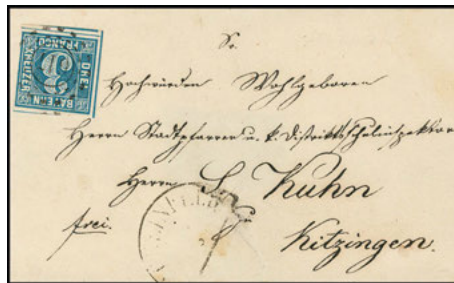 BAYERN
DREI
KREUZER
FRANCO
3
Sr.
Hochwürden Wohlgeboren
Herrn Stadtpfarrer u. k. Distriktsschulinspektor
Herrn S. Kuhn
frei.
Kitzingen.